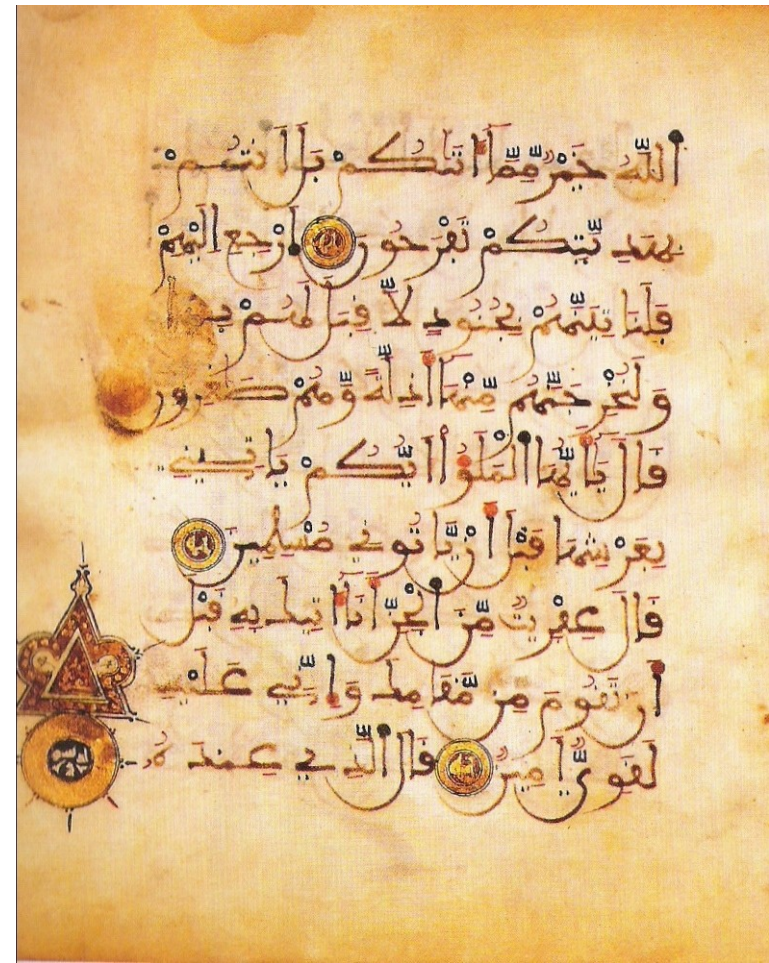 اَللَّهُ خَيْرٌ مِّمَّا ءَاتَيٰكُمْ بَلْ أَنتُمْ
بِهَدِيَّتِكُمْ تَفْرَحُونَ اَرْجِعِ اِلَيْهِمْ
فَلَنَاتِيَنَّهُمْ بِجُنُودٍ لَّا قِبَلَ لَهُمْ بِهَا
وَلَنُخْرِجَنَّهُم مِّنْهَا أَذِلَّةً وَّهُمْ صَٰغِرُونَ
قَالَ يَٰأَيُّهَا اَلْمَلَؤُا أَيُّكُمْ يَاتِينِي
بِعَرْشِهَا قَبْلَ أَنْ يَّاتُونِي مُسْلِمِينَ
قَالَ عِفْرِيتٌ مِّنَ اَلْجِنِّ أَنَا ءَاتِيكَ بِهِ قَبْلَ
أَن تَقُومَ مِن مَّقَامِكَ وَإِنِّي عَلَيْهِ
لَقَوِيٌّ أَمِينٌ قَالَ اَلَّذِي عِندَهُ